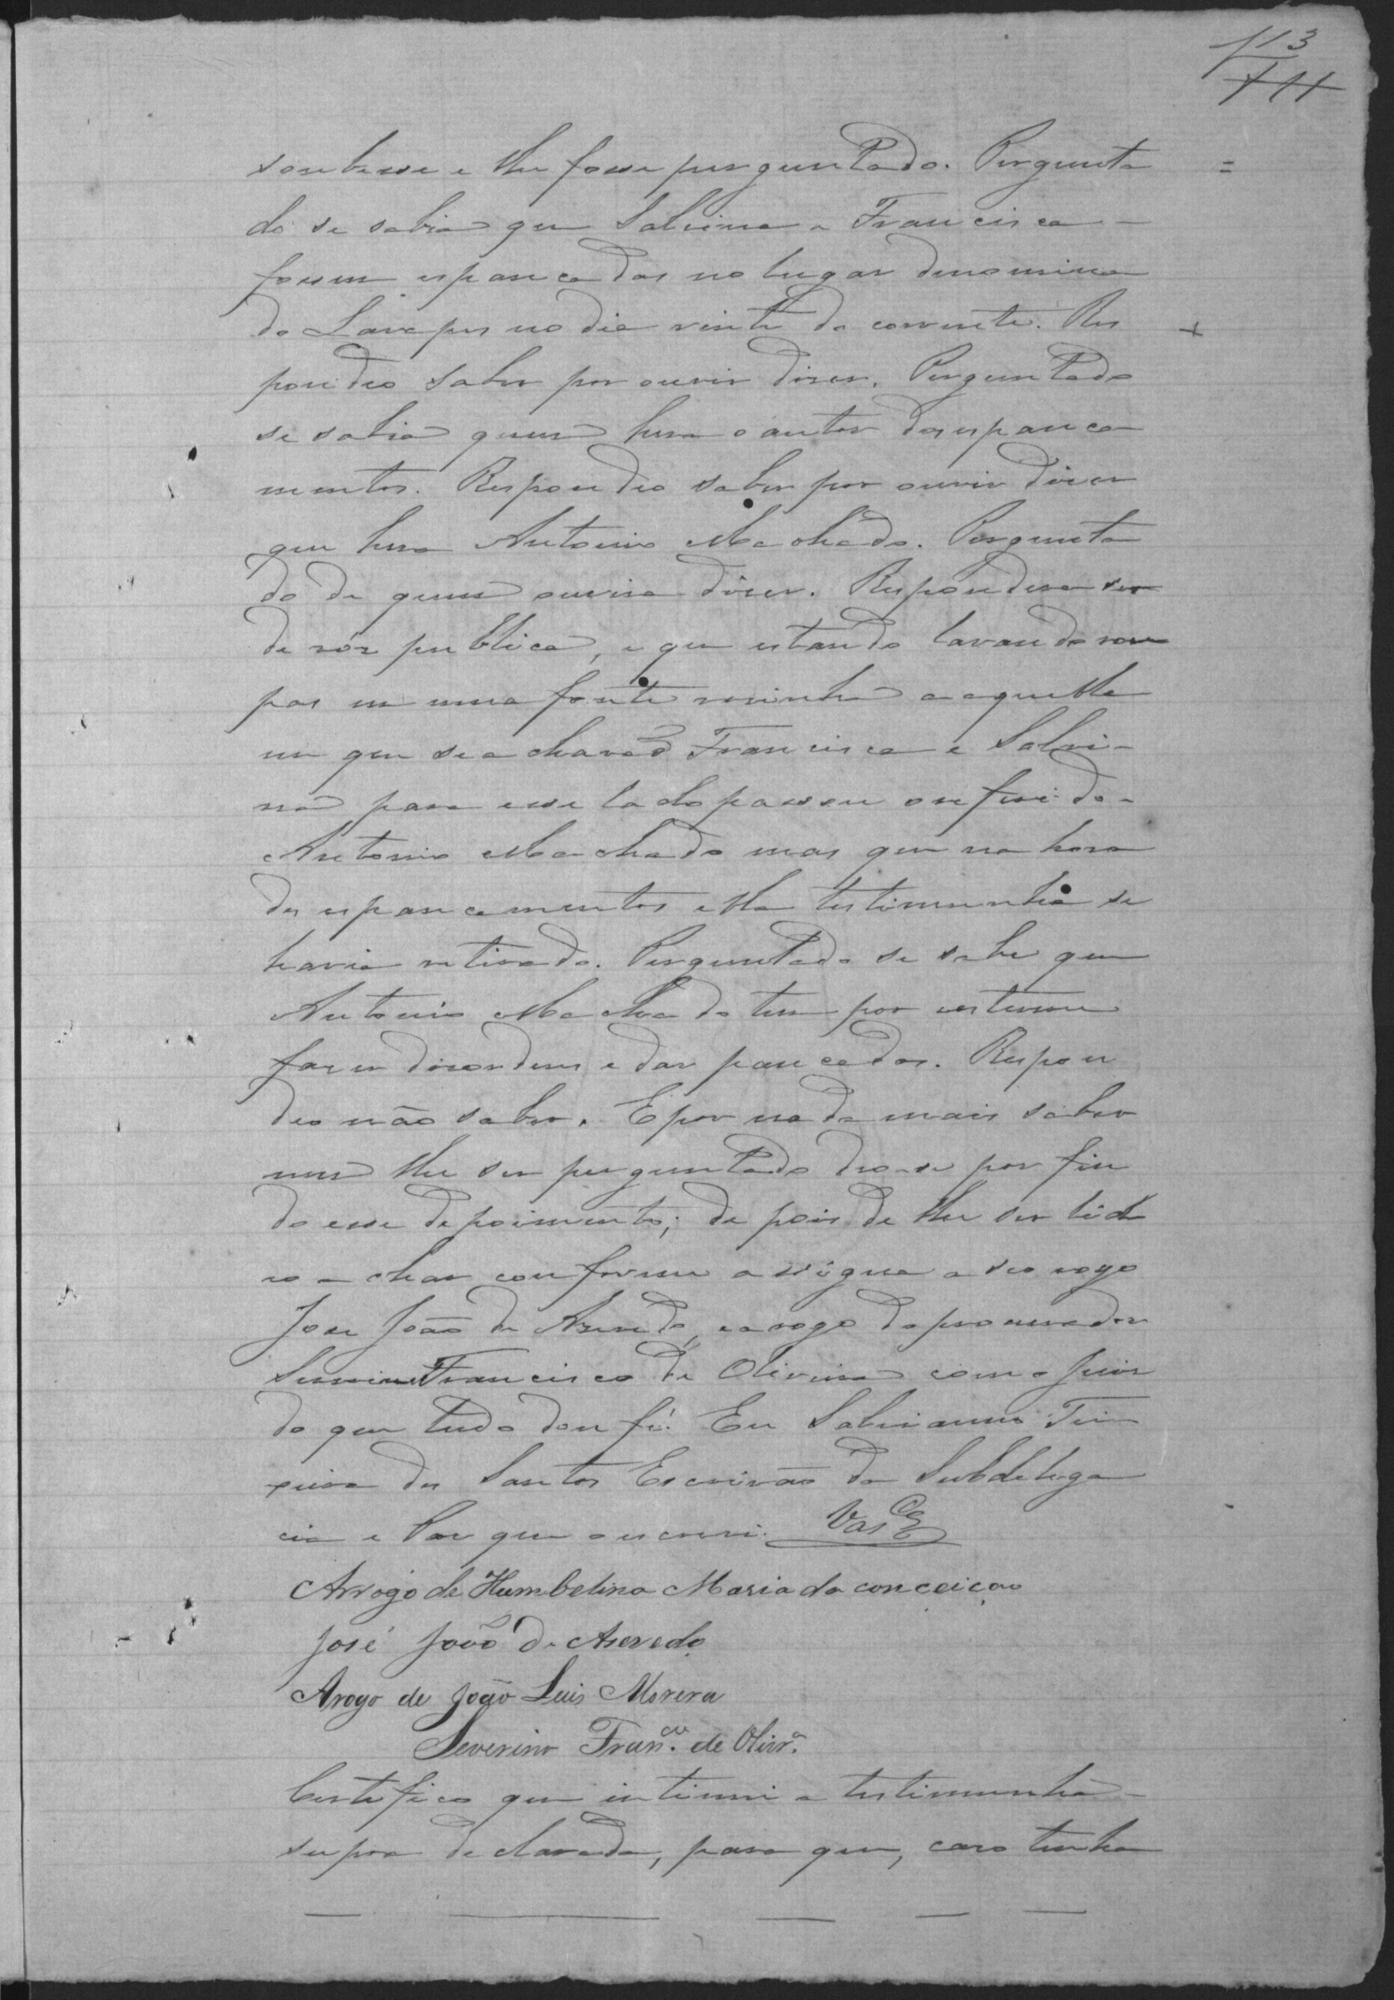 113
111
soubesse e lhe fosse perguntado. Pergunta =
do se sabia que Salvina e Francisca
fossem espancadas no lugar denomina
do Lavapes no dia vinte do corrente. Res +
pondeo saber por ouvir diser. Perguntado
se sabia quem hera o autor dos espanca
mentos. Respondeo saber por ouvir diser
que hera Antonio Machado. Pergunta
do de quem ouvira diser. Respondera ser
de vós publica, e que estando lavando rou
pas em uma fonte vesinha a aquella
em que se achavaõ Francisca e Salvi-
na para esse lado passou o referido
Antonio Machado mas que na hora
dos espancamentos ella testimunha se
havia retirado. Perguntada se sabe que
Antonio Machado tem por costume
faser disordens e dar pancadas. Respon
deo não saber. E por nada mais saber
nem lhe ser perguntado deo-se por fin
do esse depoimento; depois de lhe ser lido
e o achar conforme assigna a seo rogo
José João de Asevedo, e a rogo do procurador
Severino Francisco de Oliveira com o Juis
do que tudo dou fé. Eu Salvianno Tei
xeira dos Santos Escrivão da Subdelega
cia e Por que o escrevi. Vas
Arrogo de Humbelina Maria da conceiçao
José João de Asevedo
Arogo de João Luis Morera
Severino Franco. de Olivra.
Certifico que intimei a testimunha
supra declarada, para que, caso tenha